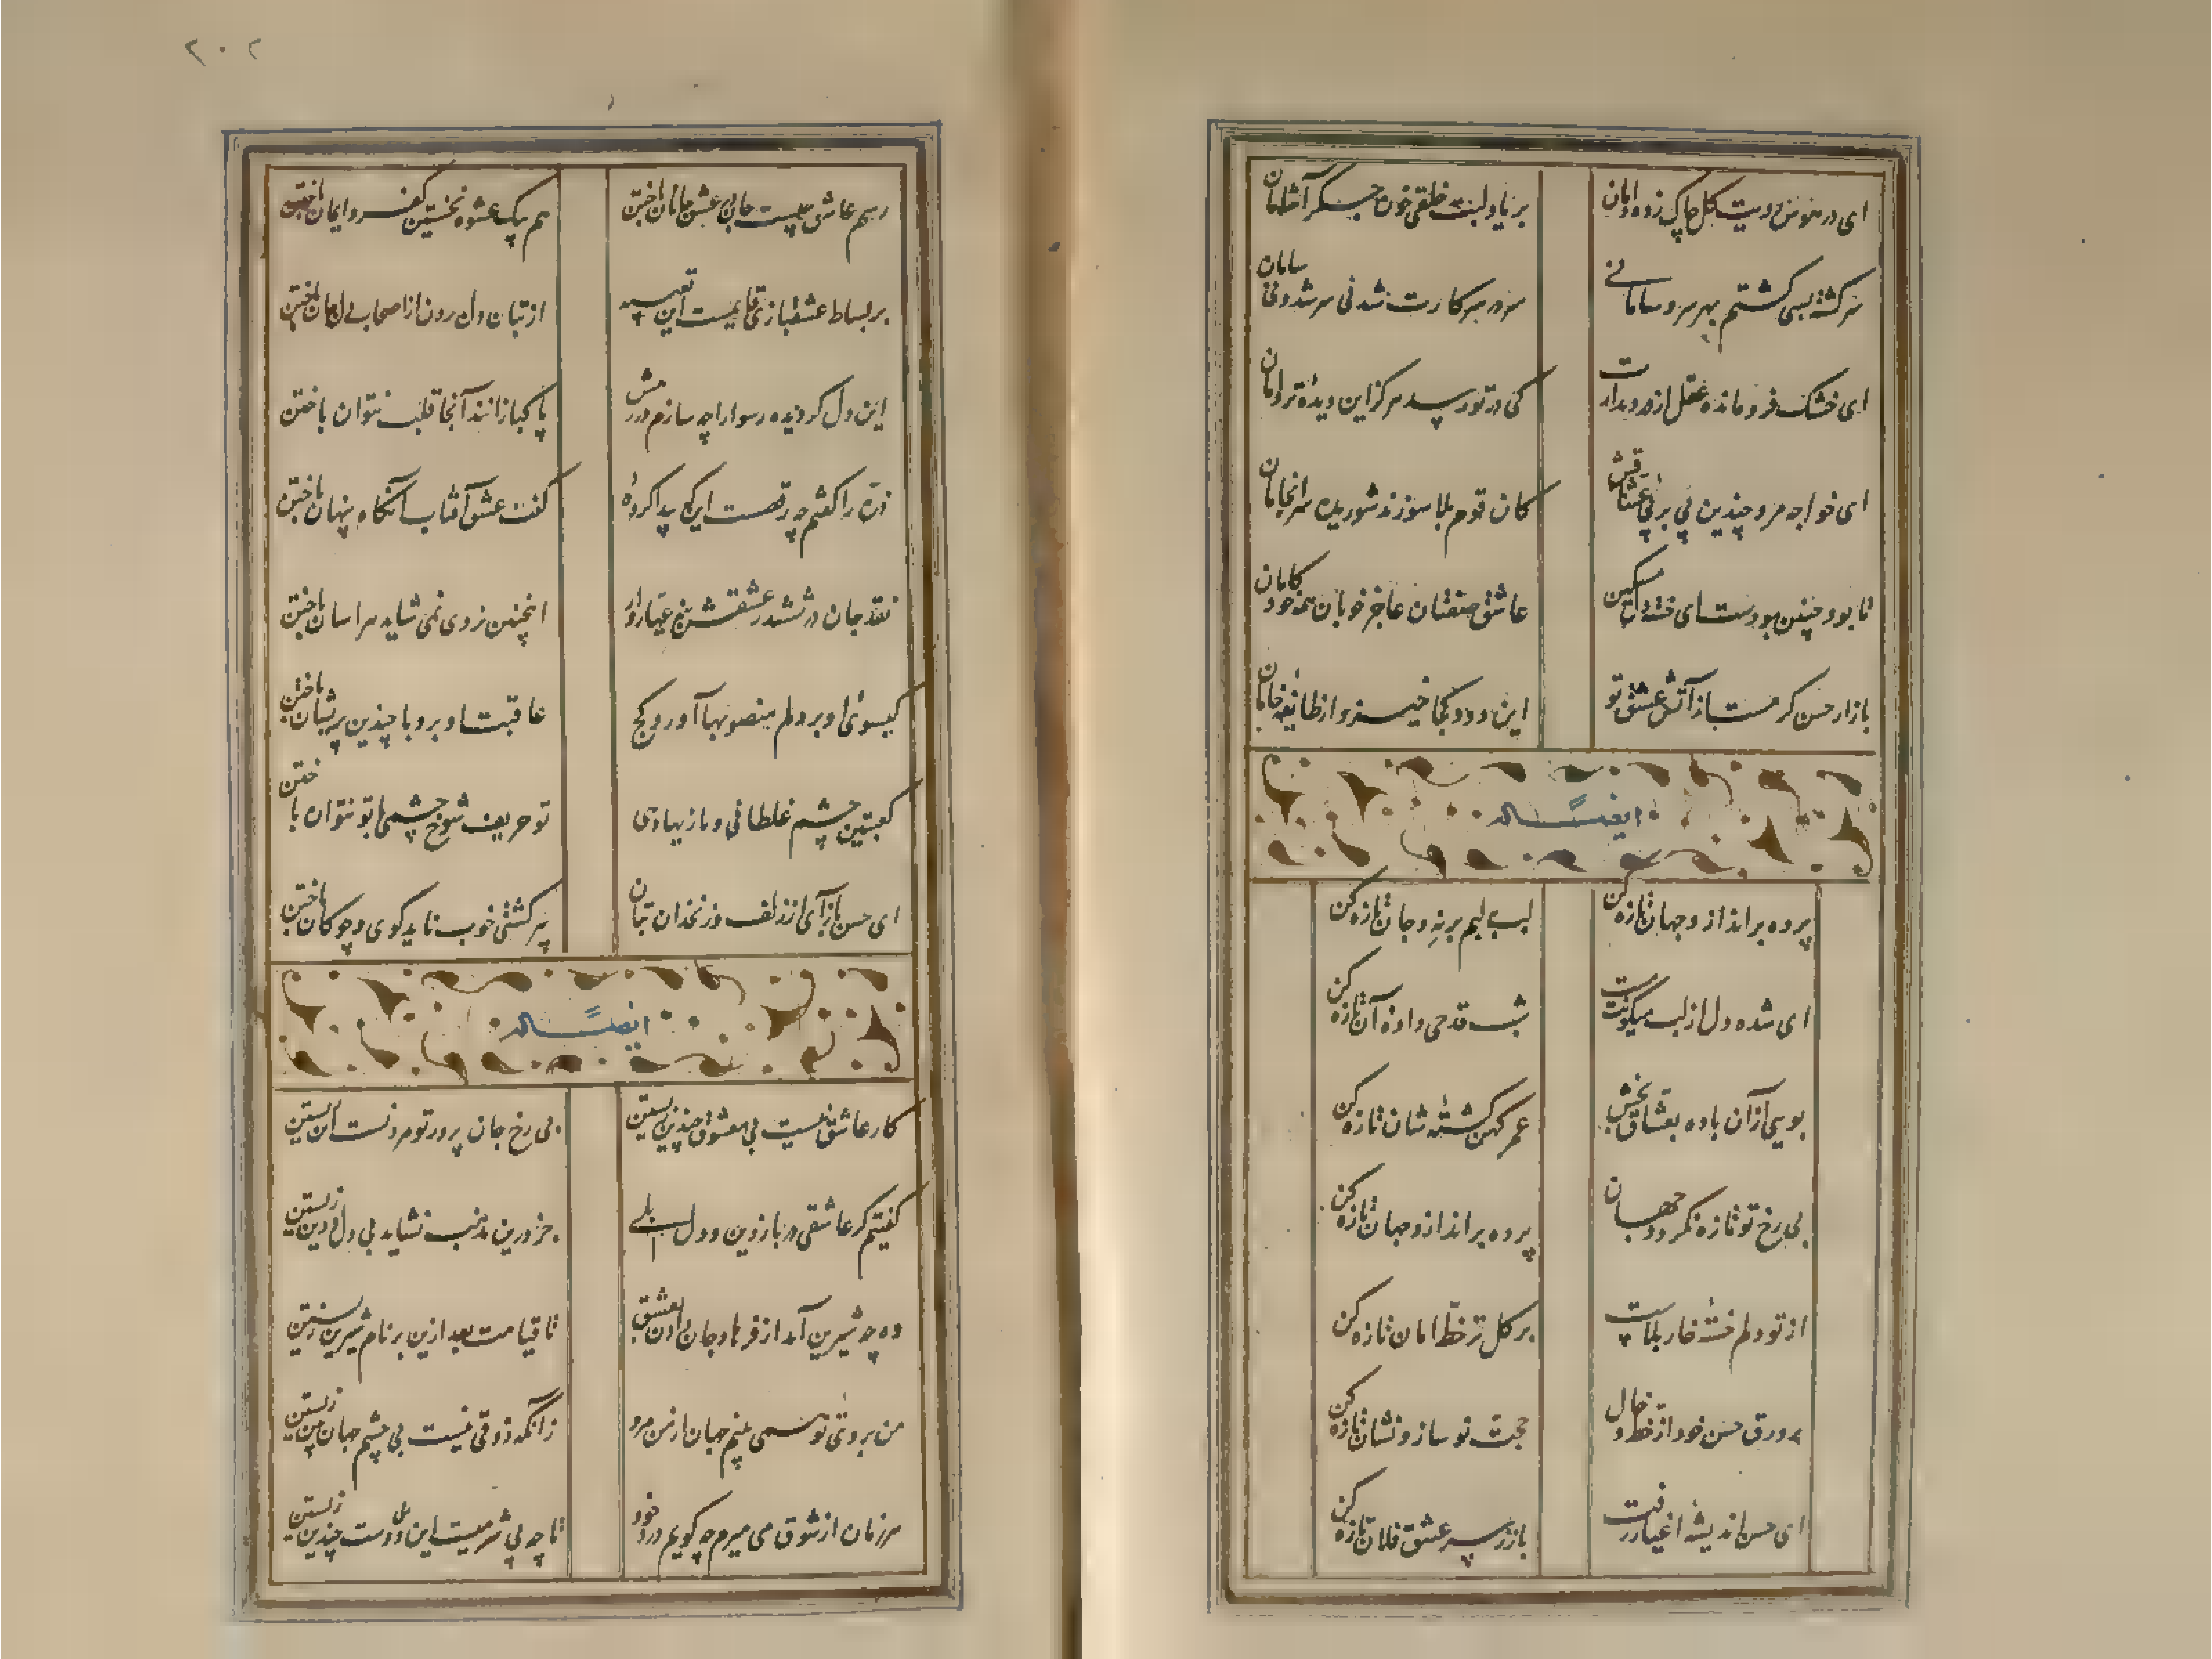 ای در هوس رویت گل چاک زده دامان
بر یاد لبت خلقی خون جگر آشامان
سرگشته بسی گشتم بهر سر و سامانی
سر در سر کارت شد نی سر شد و نی سامان
ای خشک فرو مانده عقل از در و دیدارت
کی در تو رسد هرگز این دیده تر دامان
ای خواجه مرو چندین پی بر پی عشاقش
کان قوم بلا سوزند شوریده سرانجامان
تا بود چنین بودست ای خسته دل مسکین
عاشق صفتان عاجز خوبان همه خودکامان
بازار حسن گرمست از آتش عشق تو
این دود کجا خیزد از طایفه خامان
ایضاً له
پرده برانداز و جهان تازه کن
لب بلبم بر نه و جان تازه کن
ای شده دل از لب میگونت مست
شب قدحی داده آن تازه کن
بویی از آن باده بعشاق بخش
عمر کهن گشته شان تازه کن
بی رخ تو تازه نگردد جهان
پرده برانداز و جهان تازه کن
از تو دلم خسته خار بلاست
بر گل تر خط امان تازه کن
بر ورق حسن خود از خط و خال
حجت نو ساز و نشان تازه کن
ای حسن اندیشه اغیار رفت
باز سر عشق فلان تازه کن
۲۰۲
رسم عاشق چیست جان بی عشق جانان باختن
هم بیک عشوه نخستین کفر و ایمان باختن
بر بساط عشقبازی قایمست این تعبیه
از بتان دل بردن از اصحاب دل جان باختن
این دل گردیده رسوا را چه سازم در رمش
پاکبازانند آنجا قلب نتوان باختن
ذره را گفتم چه رقصست اینکه پیدا کرده
گفت عشق آفتاب آنگاه پنهان باختن
نقد جان در ششدر عشقش منه عیاروار
اینچنین نردی نمی شاید هراسان باختن
گیسوی او بر دلم منصوبها آورد کج
عاقبت او برد با چندین پریشان باختن
کعبتین چشم غلطانی و بازیها دهی
تو حریف شوخ چشمی با تو نتوان باختن
ای حسن باز آی از زلف و زنخدان بتان
پیر گشتی خوب ناید گوی و چوگان باختن
ایضاً له
کار عاشق نیست بی معشوق چندین زیستن
بی رخ جان پرور تو مردنست این زیستن
گفتیم گر عاشقی در باز دین و دل بلی
جز درین مذهب نشاید بی دل و دین زیستن
وه چه شیرین آمد از فرهاد جان دادن بعشق
تا قیامت بعد ازین بر نام شیرین زیستن
من بروی تو همی بینم جهان از من مرو
زانکه ذوقی نیست بی چشم جهان بین زیستن
هر زمان از شوق می میرم چه گویم درد خود
تا چه بی شرمیست این دل دوست چندین زیستن